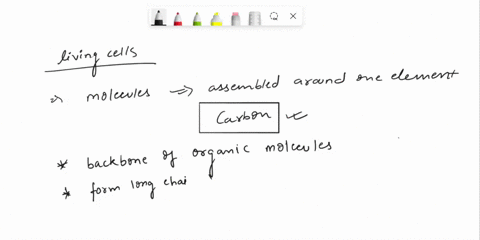 living cells
⇒ molecules ⇒ assembled around one element
Carbon ✓
* backbone of organic molecules
* form long chai